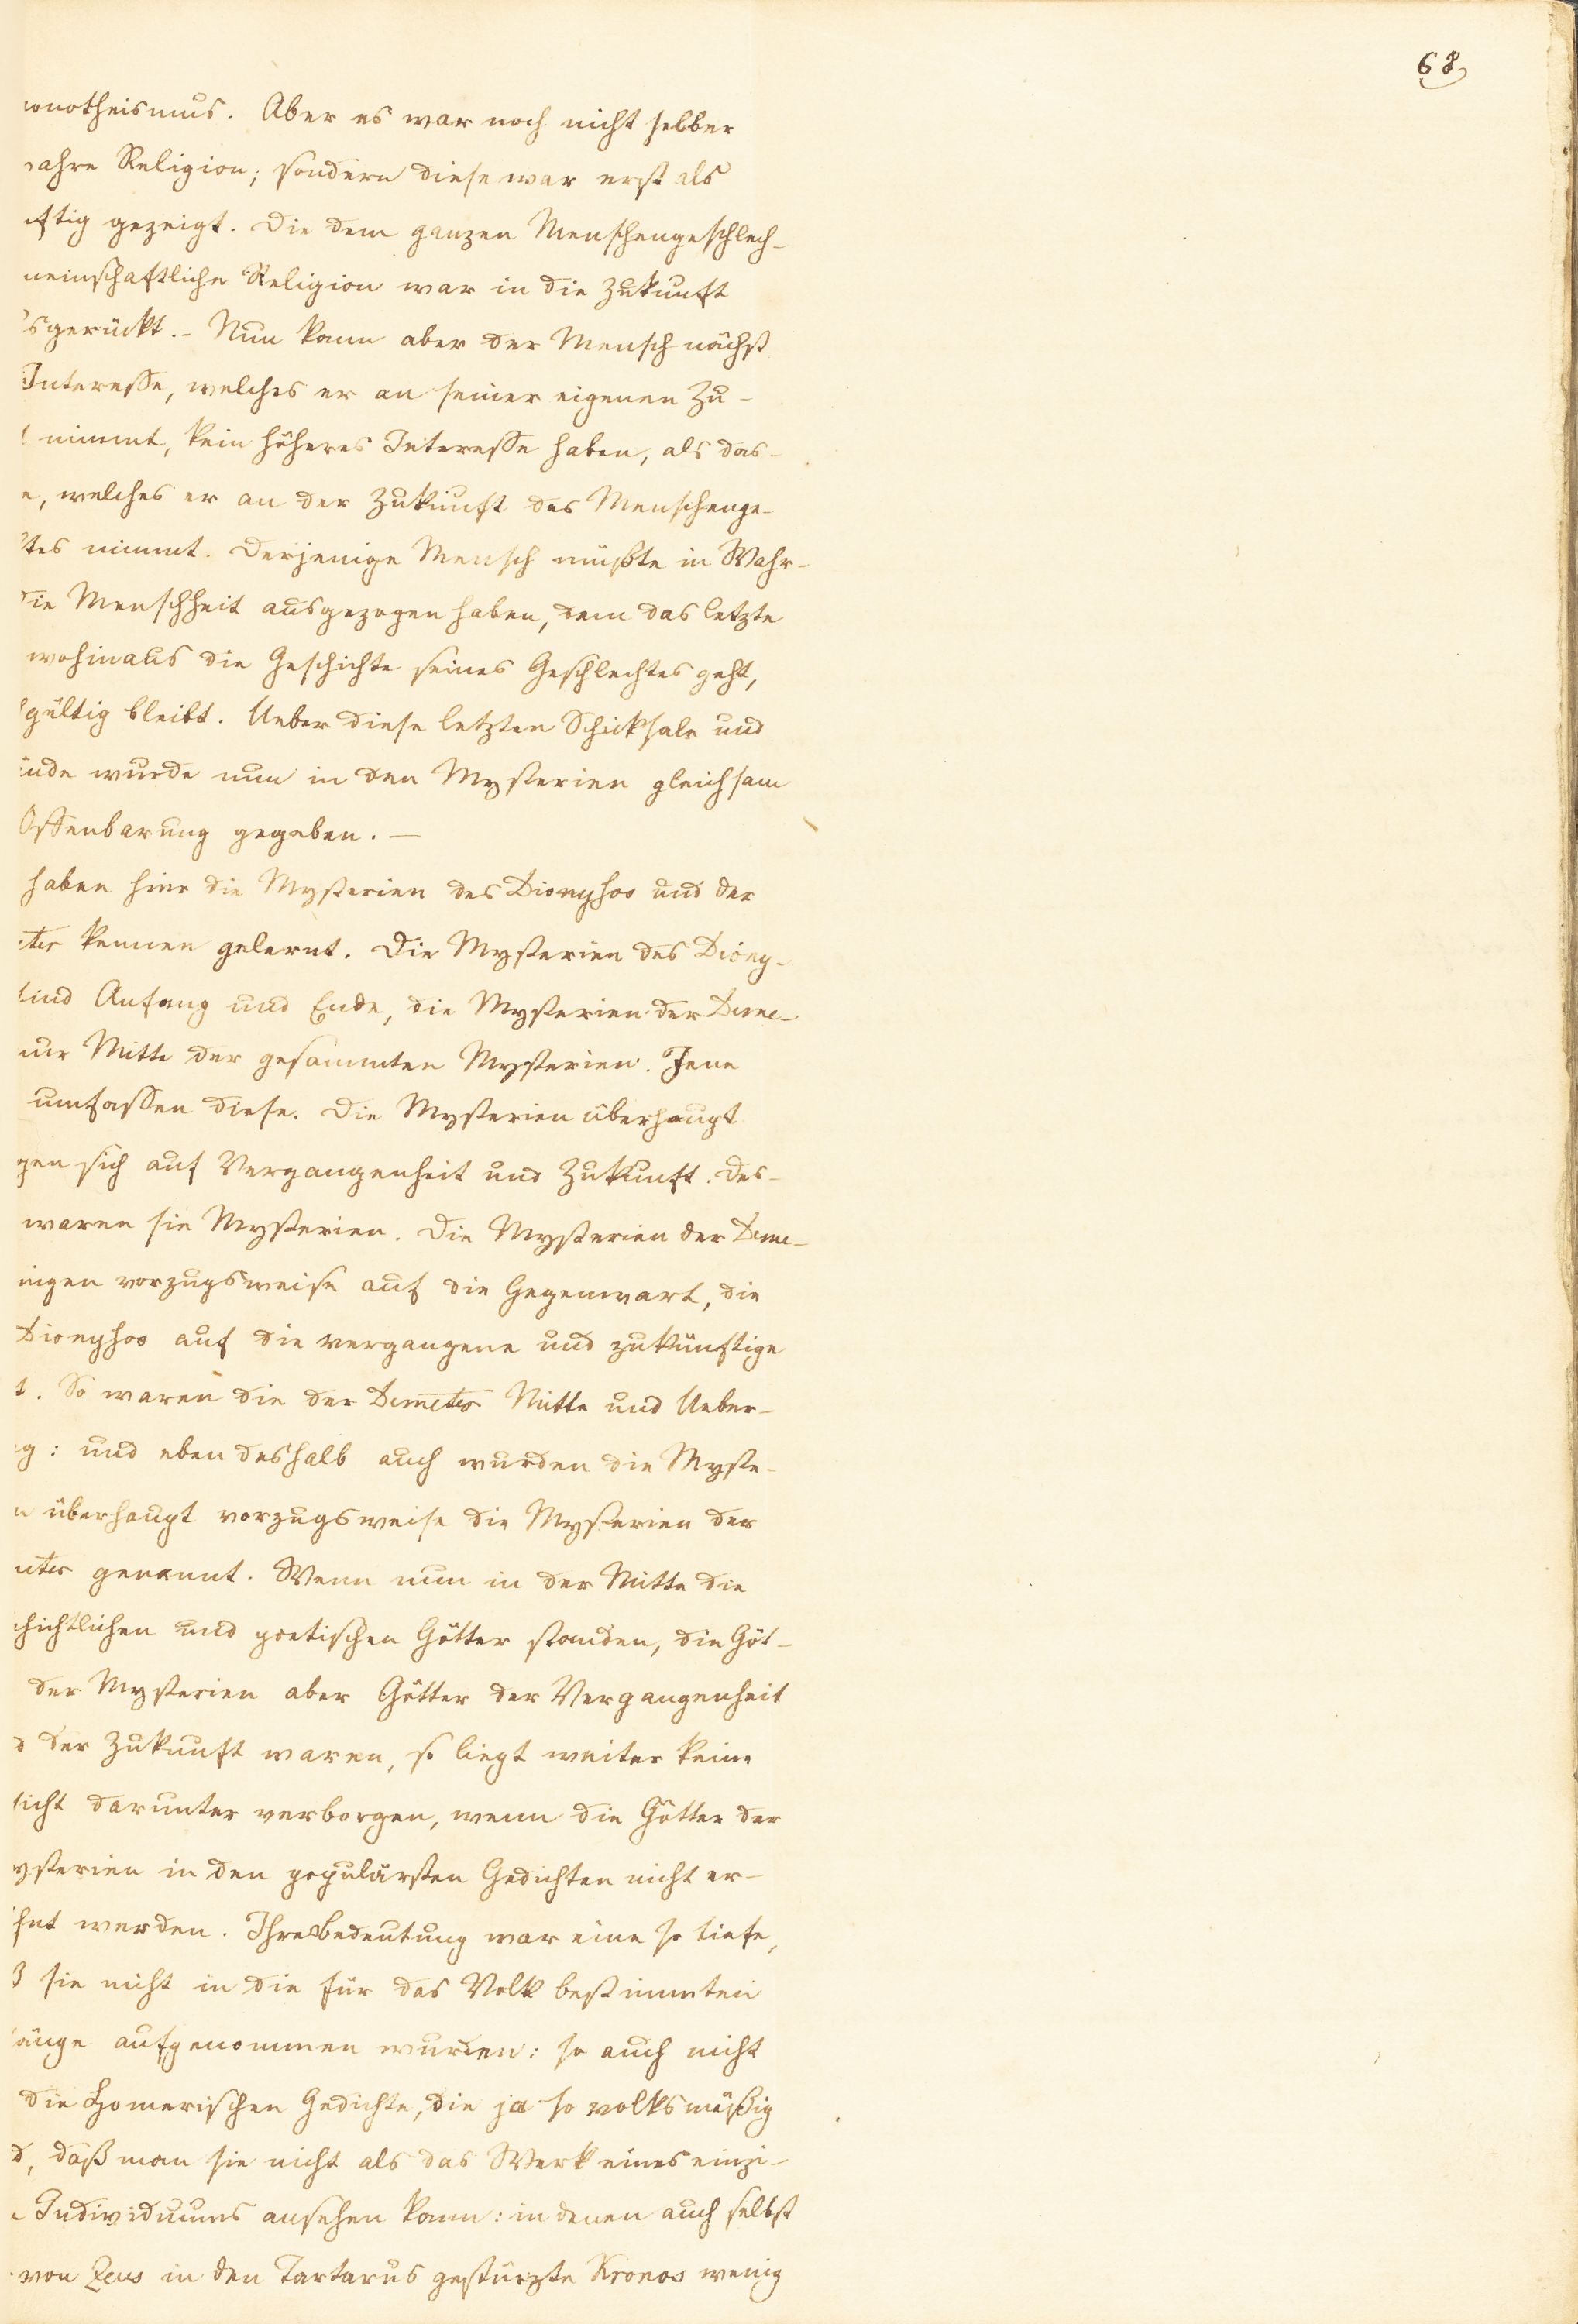 68
onotheismus. Aber es war noch nicht selber
ahre Religion; sondern diese war erst als
ftig gezeigt. Die dem ganzen Menschengeschlech-
neinschaftliche Religion war in die Zukunft
sgerückt.- Nun kann aber der Mensch nächst
Interesse, welches er an seiner eigenen Zu-
t nimmt, kein höheres Interesse haben, als das-
e, welches er an der Zukunft des Menschenge-
tes nimmt. Derjenige Mensch müßte in Wahr-
die Menschheit ausgezogen haben, dem das letzte
wohinaus die Geschichte seines Geschlechtes geht,
gültig bleibt. Ueber diese letzten Schicksale und
ände wurde nun in den Mysterien gleichsam
Offenbarung gegeben. —
haben hier die Mysterien des Dionysos und der
ter kennen gelernt. Die Mysterien des Diony-
sind Anfang und Ende, die Mysterien der Deme-
nur Mitte der gesammten Mysterien. Jene
umfassen diese. Die Mysterien überhaupt
gen sich auf Vergangenheit und Zukunft. Des-
waren sie Mysterien. Die Mysterien der Deme-
ingen vorzugsweise auf die Gegenwart, die
Dionysos auf die vergangene und zukünftige
t. So waren die der Demeter Mitte und Ueber-
g: und eben deshalb auch wurden die Myste-
n überhaupt vorzugsweise die Mysterien der
eter genannt. Wenn nun in der Mitte die
chichtlichen und poetischen Götter standen, die Göt-
der Mysterien aber Götter der Vergangenheit
d der Zukunft waren, so liegt weiter keine
sicht darunter verborgen, wenn die Götter der
ysterien in den populärsten Gedichten nicht er-
hnt werden. Ihre Bedeutung war eine so tiefe,
ß sie nicht in die für das Volk bestimmten
sänge aufgenommen wurden: so auch nicht
die Homerischen Gedichte, die ja so volksmäßig
d, daß man sie nicht als das Werk eines einzi-
n Individuums ansehen kann: in denen auch selbst
von Zeus in den Tartarus gestürzte Kronos wenig